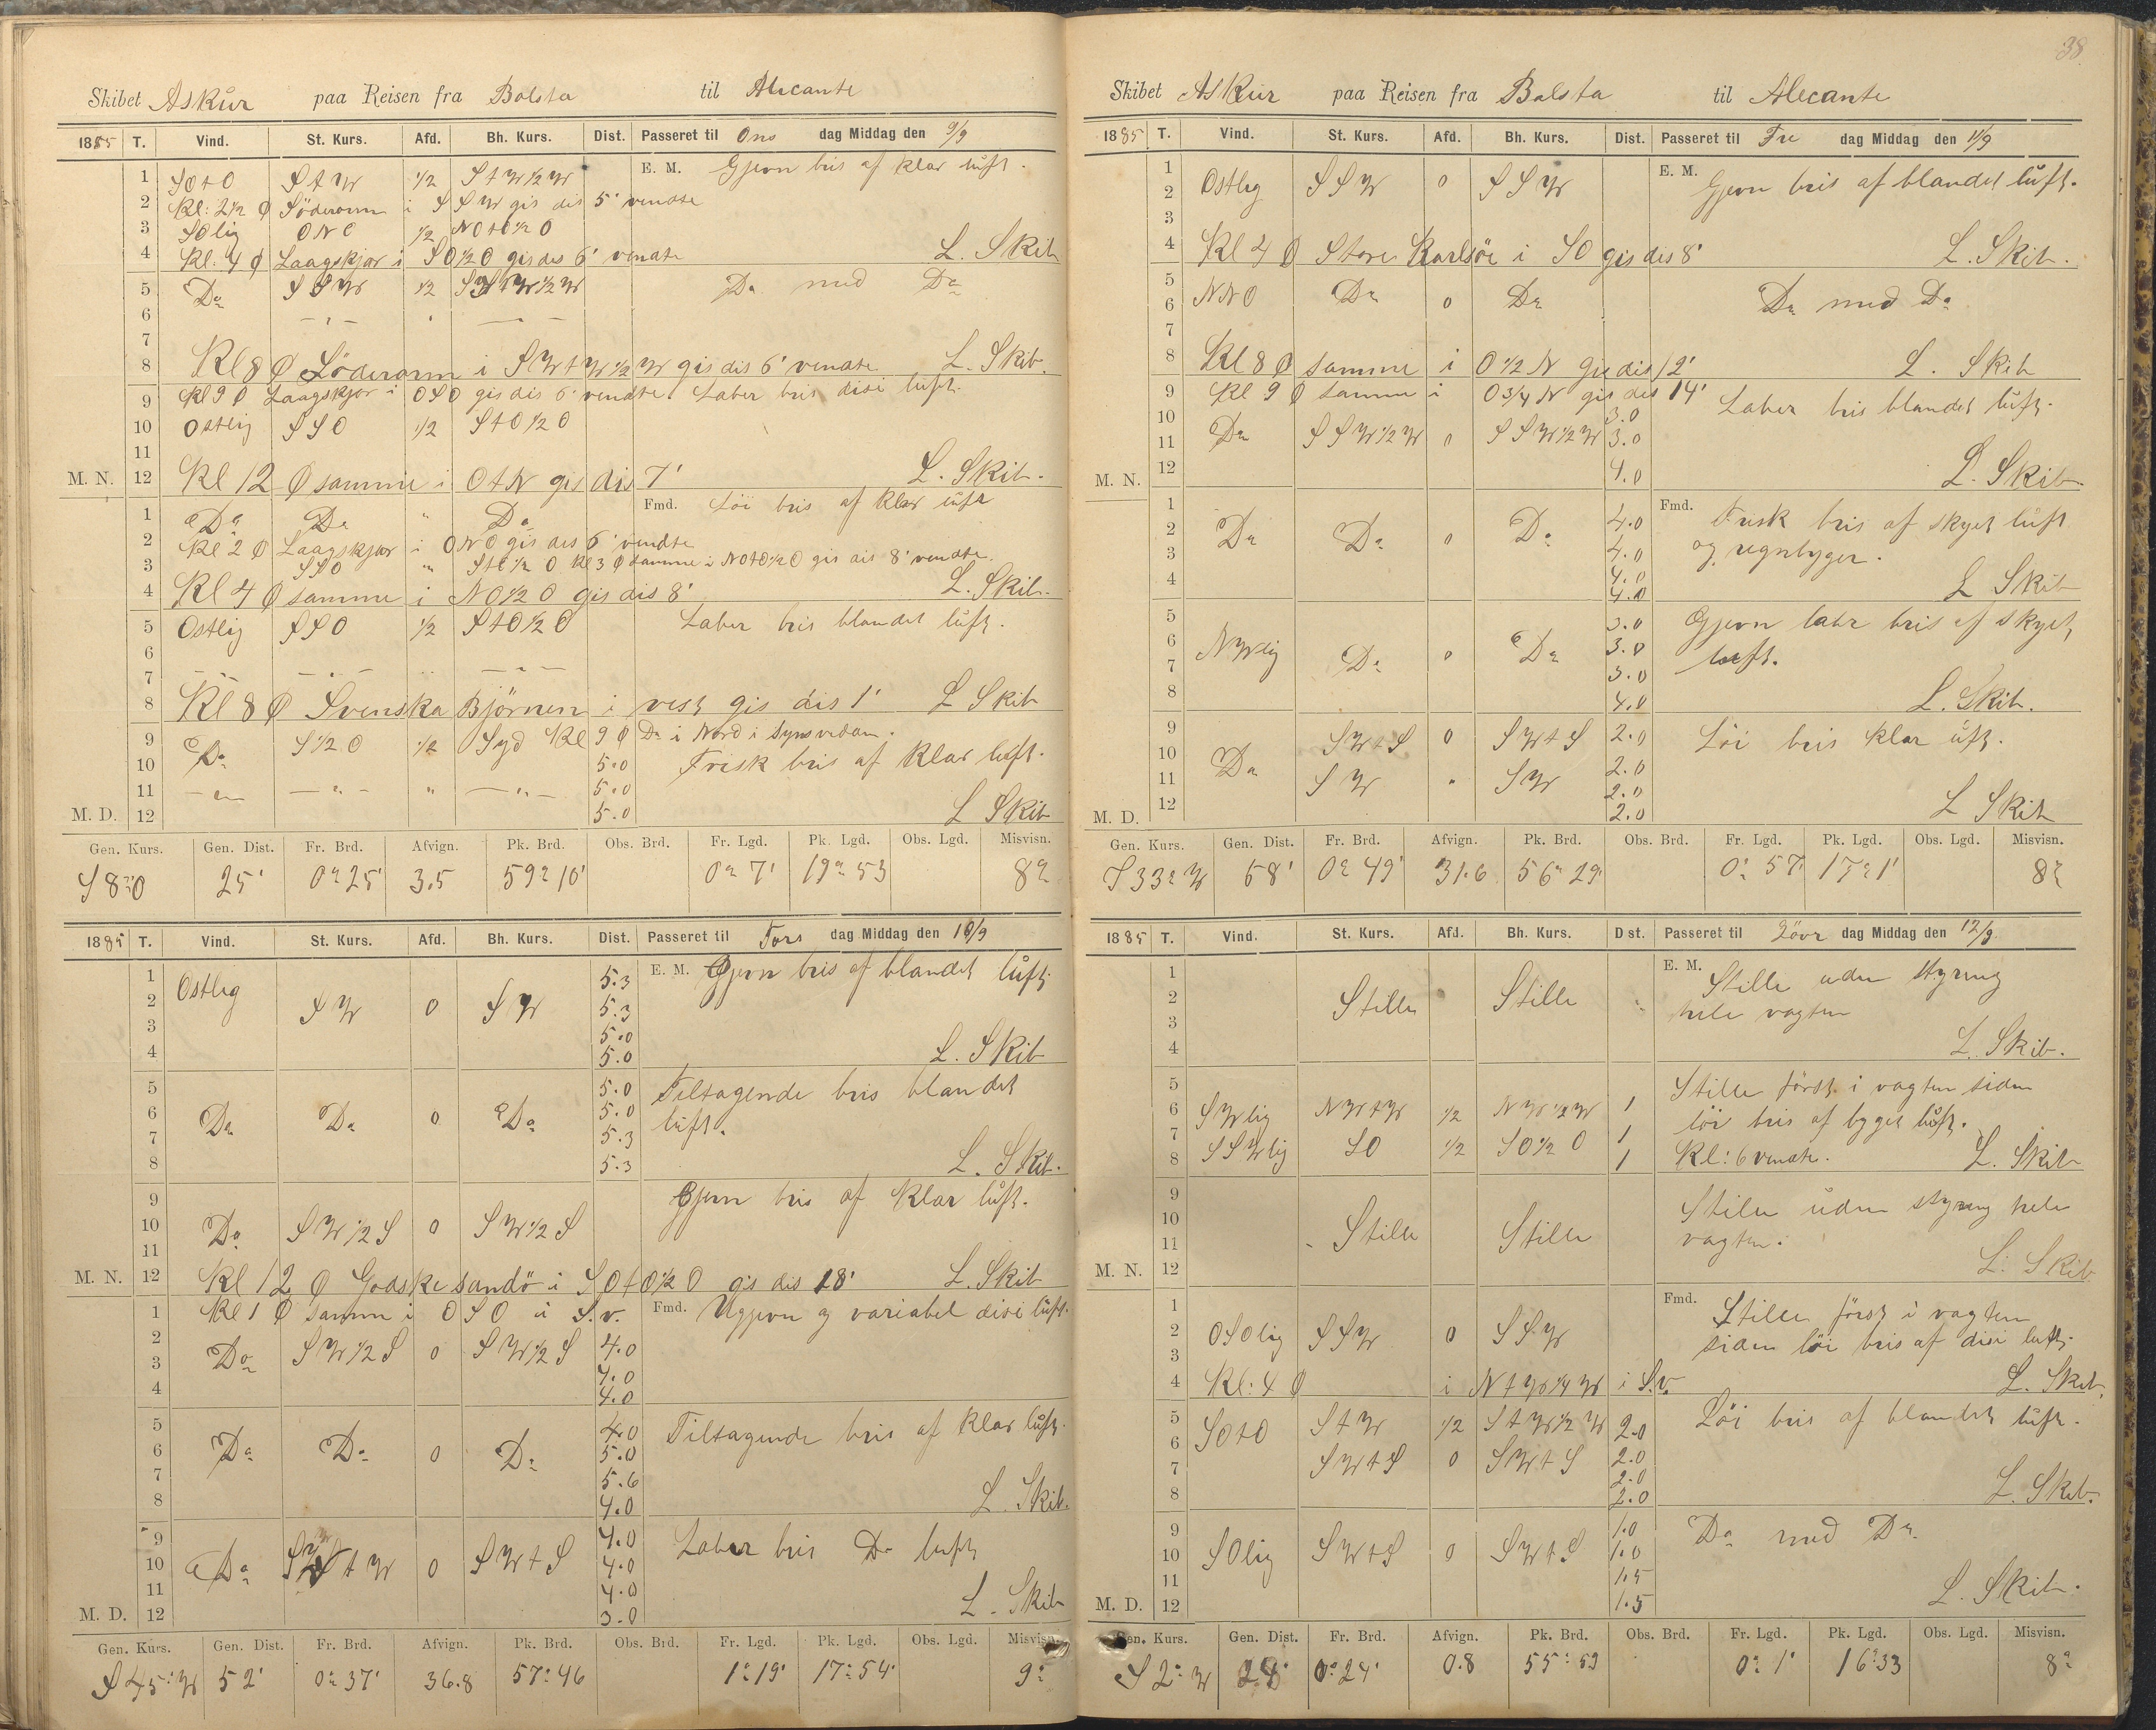 38
Skibet Askur paa Reisen fra Bolsta til Alicante
1885 T. Vind. St. Kurs. Afd. Bh. Kurs. Dist. Passeret til Ons dag Middag den 9/9
1 SOtO StW 1/2 StW1/2W E. M. Gjevn bris af klar luft.
2 Kl: 2 1/2 Ø Söderarm i SSW gis dis 5' vendte
3 SOlig ONO 1/2 NOtO1/2O
4 Kl. 4 Ø Laagskjær i SO1/2O gis dis 6' vendte L. Skib
5 Do SSW 1/2 StW1/2W Do med Do
6
7
8 Kl 8 Ø Söderarm i SWtW1/2W gis dis 6' vendte L. Skib.
9 Kl 9 Ø Laagskjær i OSO gis dis 6' vendte. Laber bris disi luft.
10 Ostlig SSO 1/2 StO1/2O
11
M. N. 12 Kl 12 Ø samme i OtN gis dis 7' L. Skib.
1 Do Do " Do Fmd. Löi bris af klar luft
2 Kl 2 Ø Laagskjær i ONO gis dis 6' vendte
3 SSO " StO1/2O Kl 3 Ø samme i NOtO1/2O gis dis 8' vendte.
4 Kl 4 Ø samme i NO1/2O gis dis 8' L. Skib.
5 Ostlig SSO 1/2 StO1/2O Laber bris blandet luft.
6
7
8 Kl 8 Ø Svenska Björnen i vest gis dis 1' L Skib
9 Do S1/2O 1/2 Syd Kl 9 Ø Do i Nord i Synsvidde.
10 5.0 Frisk bris af klar luft.
11 5.0
M. D. 12 5.0 L Skib
Gen. Kurs. Gen. Dist. Fr. Brd. Afvign. Pk. Brd. Obs. Brd. Fr. Lgd. Pk. Lgd. Obs. Lgd. Misvisn.
S8°O 25' 0° 25' 3.5 59° 10' 0° 7' 19° 53 8°
1885 T. Vind. St. Kurs. Afd. Bh. Kurs. Dist. Passeret til Tors dag Middag den 10/9
1 Ostlig 5.3 E. M. Gjevn bris af blandet luft
2 SW 0 SW 5.3
3 5.0
4 5.0 L. Skib
5 5.0 Tiltagende bris blandet
6 Do Do 0 Do 5.0 luft.
7 5.3
8 5.3 L. Skib.
9 Gjevn bris af klar luft.
10 Do SW1/2S 0 SW1/2S
11
M. N. 12 Kl 12 Ø Godske sandö i SOtO1/2O gis dis 18' L. Skib
1 Kl 1 Ø samm i OSO u S.v. Fmd. Ugjevn og variabel disi luft.
2 Do SW1/2S 0 SW1/2S 4.0
3 4.0
4 4.0
5 4.0 Tiltagende bris af klar luft.
6 Do Do 0 Do 5.0
7 5.6
8 4.0 L. Skib.
9 4.0 Laber bris Do luft
10 Do tW 0 SWtS 4.0
11 4.0
M. D. 12 3.0 L. Skib
Gen. Kurs. Gen. Dist. Fr. Brd. Afvign. Pk. Brd. Obs. Brd. Fr. Lgd. Pk. Lgd. Obs. Lgd. Misvisn.
S 45° W 52' 0° 37' 36.8 57° 46 1° 19' 17° 54' 9°
Skibet Askur paa Reisen fra Balsta til Alecante
1885 T. Vind. St. Kurs. Afd. Bh. Kurs. Dist. Passeret til Fre dag Middag den 11/9
1 E. M. Gjevn bris af blandet luft.
2 Ostlig SSW 0 SSW
3
4 Kl 4 Ø Store Karlsöe i SO gis dis 8' L. Skib.
5
6 NNO Do 0 Do Do med Do
7
8 Kl 8 Ø samme i O1/2N gis dis 12' L. Skib
9 Kl 9 Ø samme i O3/4N gis dis 14' Laber bris blandet luft.
10 3.0
11 Do SSW1/2W 0 SSW1/2W 3.0
M. N. 12 4.0 L. Skib.
1 4.0 Fmd. Frisk bris af skyet luft
2 Do Do 0 Do 4.0 og regnbyger.
3 4.0
4 4.0 L Skib
5 3.0 Gjevn labr bris af skyet
6 NWlig Do 0 Do 3.0 luft.
7 3.0
8 4.0 L. Skib.
9 SWtS 0 SWtS 2.0 Löi bris klar luft.
10 Do 2.0
11 SW " SW 2.0
M. D. 12 2.0 L Skib
Gen. Kurs. Gen. Dist. Fr. Brd. Afvign. Pk. Brd. Obs. Brd. Fr. Lgd. Pk. Lgd. Obs. Lgd. Misvisn.
S 33° W 58' 0° 49' 31.6 56° 29' 0° 57' 17° 1' 8°
1885 T. Vind. St. Kurs. Afd. Bh. Kurs. Dist. Passeret til Lövr dag Middag den 12/9
1 E. M. Stille uden styring
2 Stille Stille hele vagten
3
4 L. Skib.
5 Stille först i vagten siden
6 SWlig NWtW 1/2 NW1/2W 1 löi bris af byget luft.
7 SSWlig SO 1/2 SO1/2O 1
8 1 Kl: 6 vendte. L. Skib
9 Stille uden styring hele
10 Stille Stille vagten.
11
M. N. 12 L. Skib
1 Fmd. Stille först i vagten
2 OSOlig SSW 0 SSW siden löi bris af disi luft.
3
4 Kl: 4 Ø i NtW1/4W i S.v. L. Skib.
5 SOtO StW 1/2 StW1/2W 2.0 Löi bris af blandet luft.
6 SWtS 0 SWtS 2.0
7 2.0
8 2.0 L. Skib.
9 1.0 Do med Do.
10 SOlig SWtS 0 SWtS 1.0
11 1.5
M. D. 12 1.5 L. Skib.
Gen. Kurs. Gen. Dist. Fr. Brd. Afvign. Pk. Brd. Obs. Brd. Fr. Lgd. Pk. Lgd. Obs. Lgd. Misvisn.
S 2° W 28' 0° 24' 0.8 55° 59 0° 1' 16° 33 8°